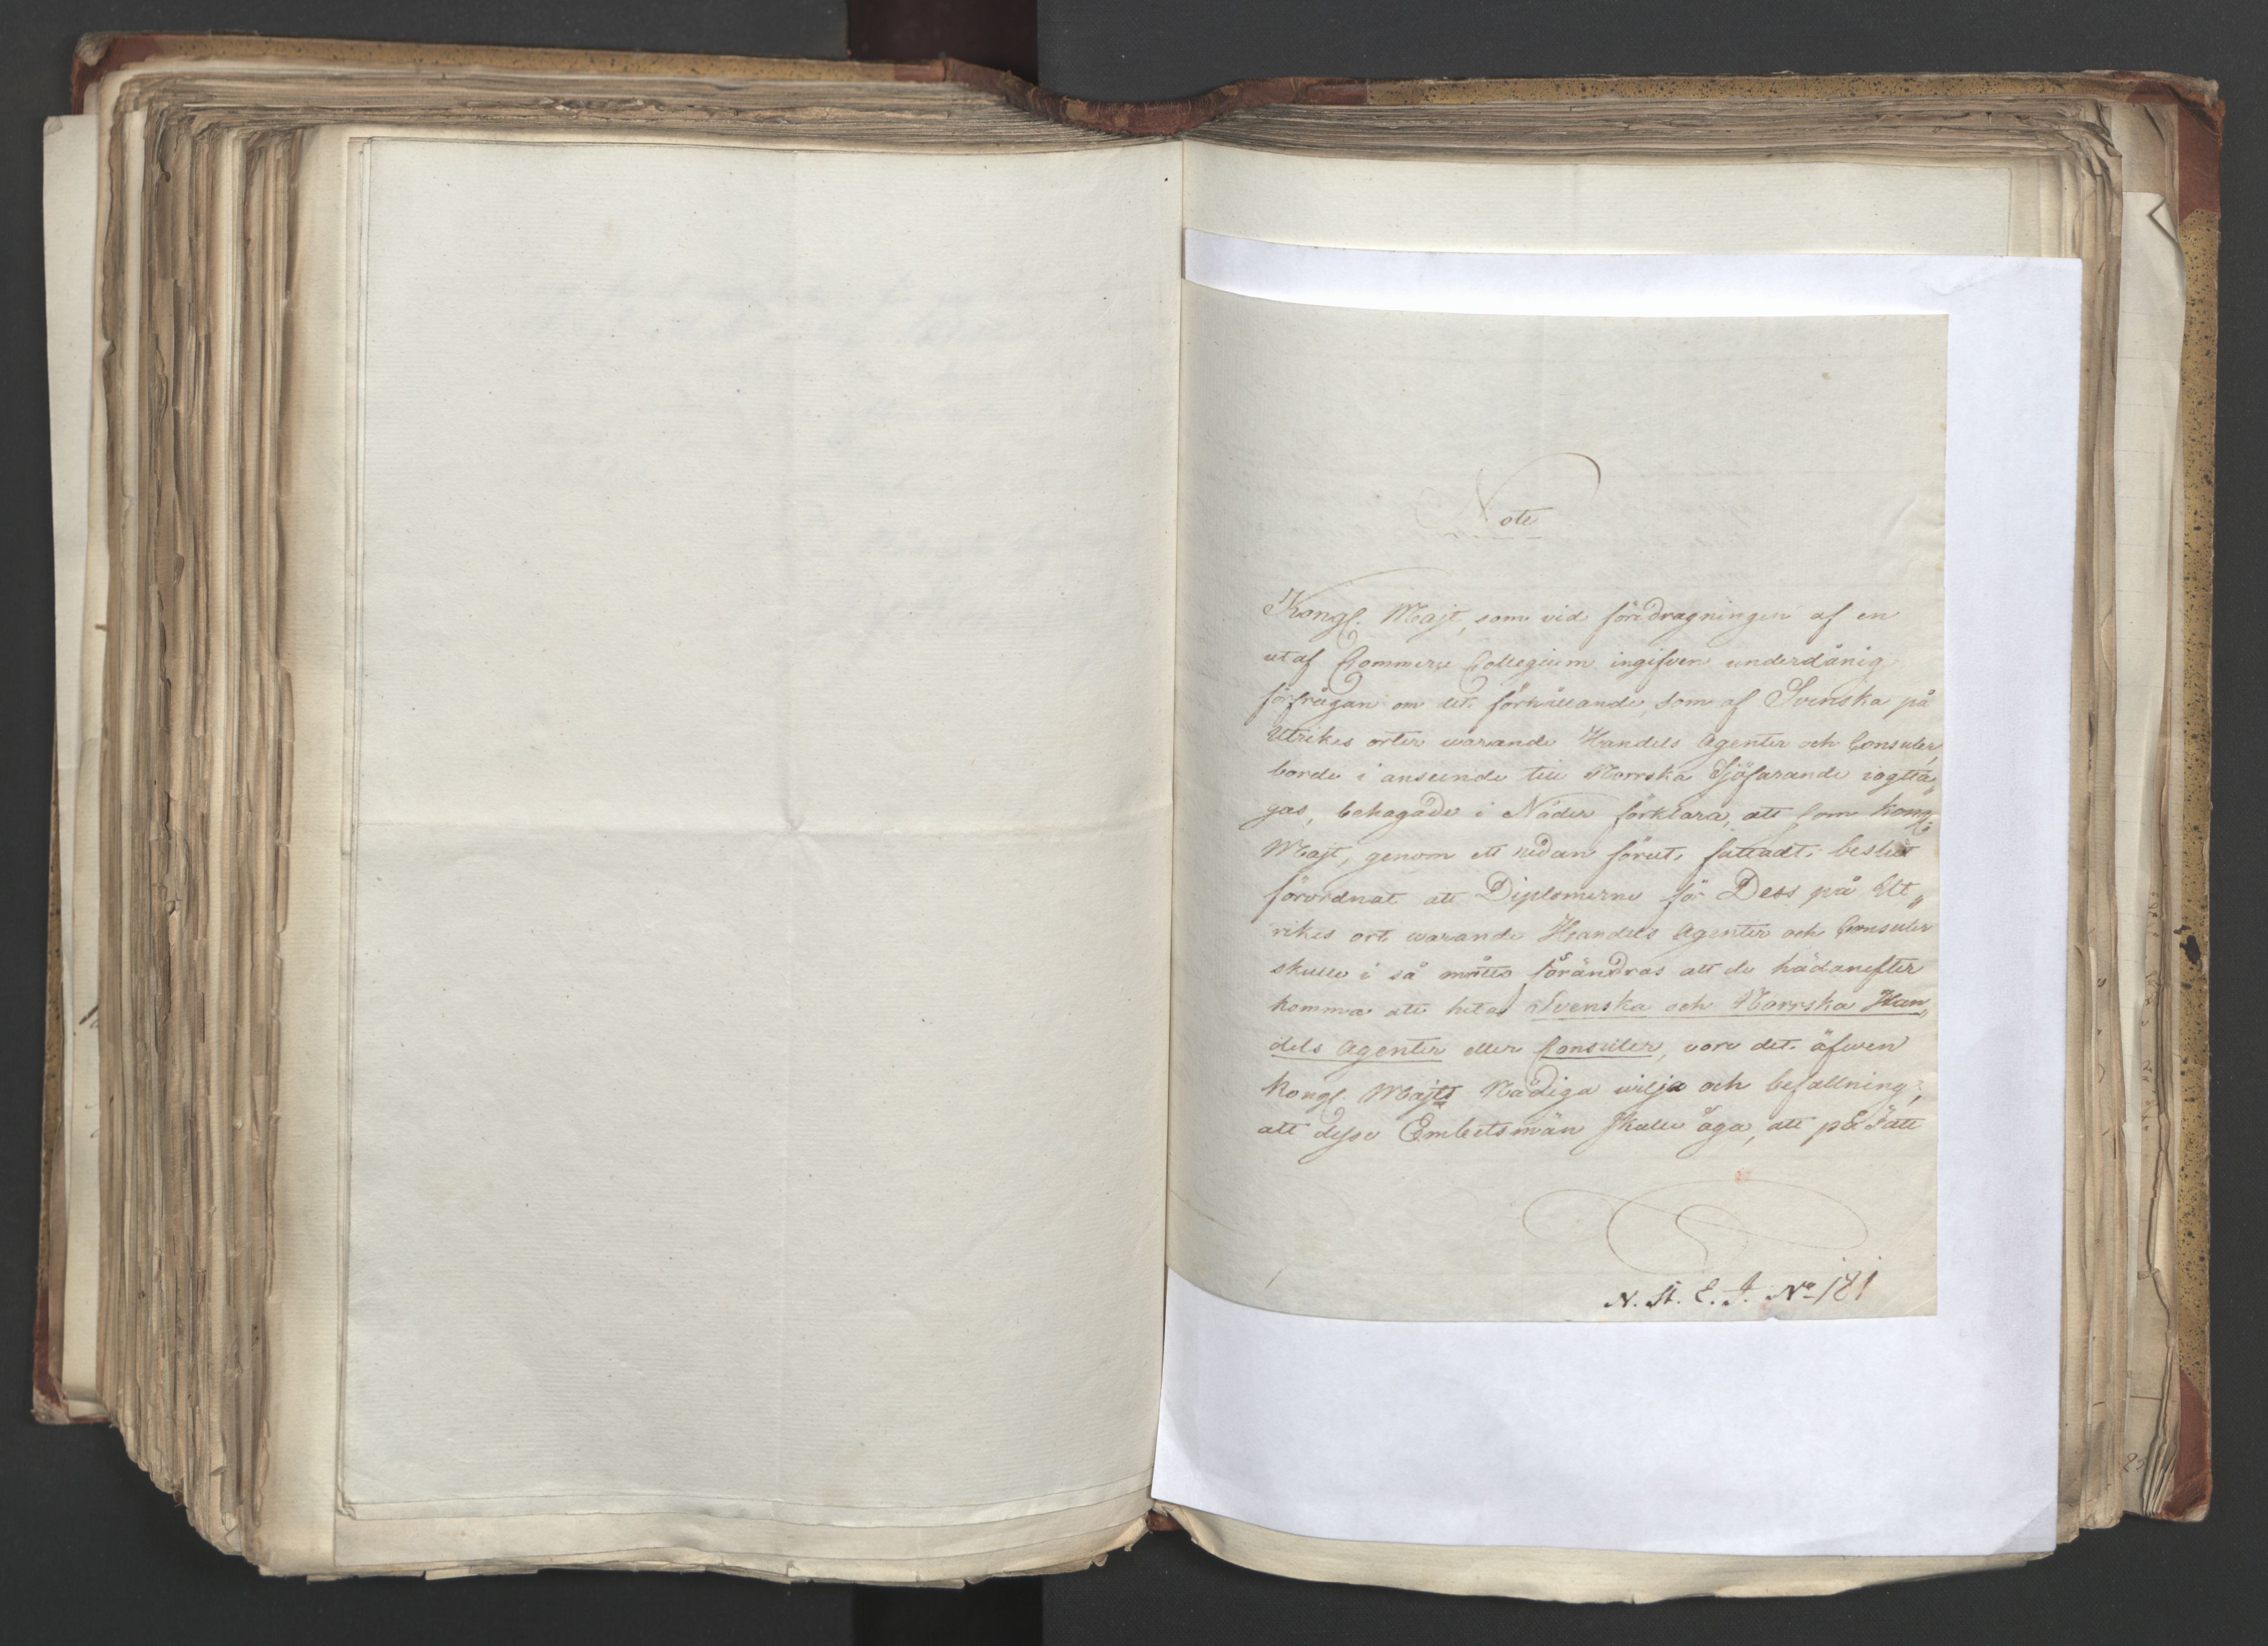 Note
Kongl. Majt, som vid föredragningen af en
utaf Commerse Collegium ingifven underdånig
förfrågan om det förhållande, som af Svenska på
Utrikes orter warande Handels Agenter och Consuler,
borde i anseende till Norrska Sjöfarande iagtta„
gas, behagade i Nåder förklara, att som Kongl.
Majt, genom ett redan förut fattadt beslut
förordnat att Diplomerne för Dess på Ut„
rikes ort warande Handels Agenter och Consuler
skulle i så måtto förändras att de hädanefter
komma att heta Svenska och Norrska Han„
dels Agenter eller Consuler, vore det äfwen
Kongl. Majts Nådiga wilja och befallning,
att desse Embetsmän skulle äga, att på sätt
N. St. E. J. No 181